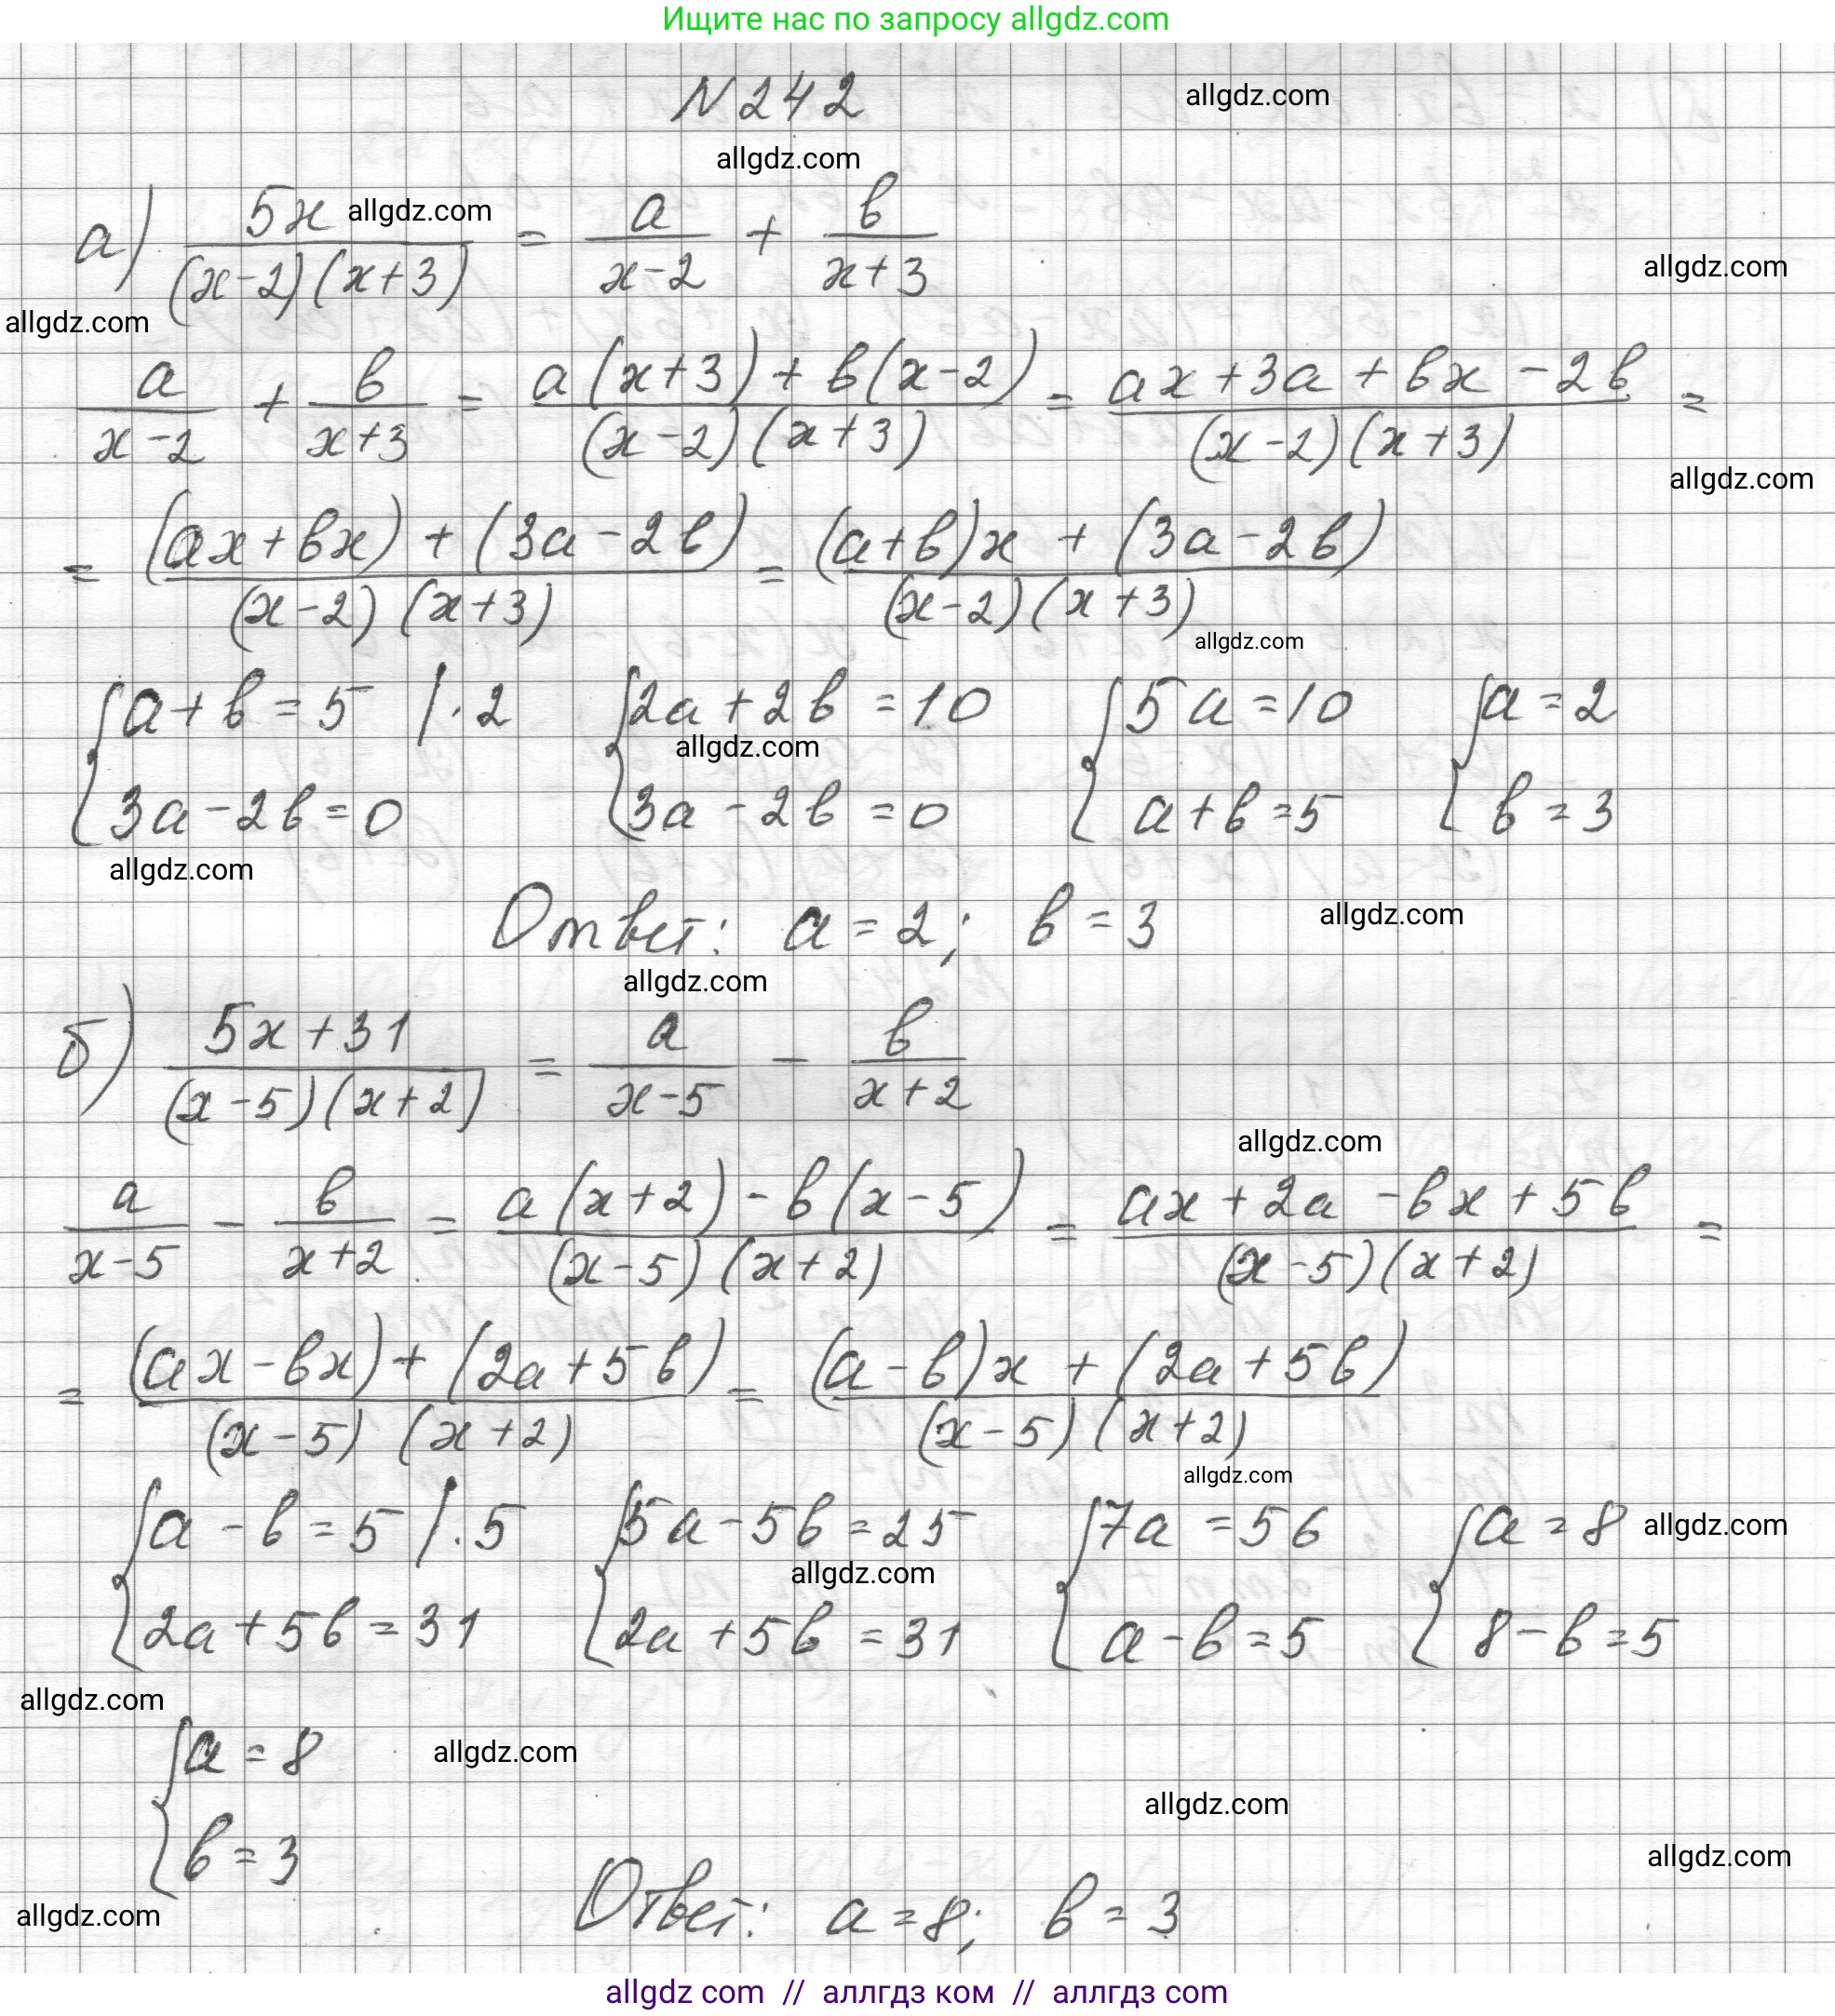 Ищите нас по запросу allgdz.com
N 242
allgdz.com
allgdz.com
а) 5x / ((x-2)(x+3)) = a / (x-2) + b / (x+3)
allgdz.com
allgdz.com
allgdz.com
a / (x-2) + b / (x+3) = (a(x+3) + b(x-2)) / ((x-2)(x+3)) = (ax + 3a + bx - 2b) / ((x-2)(x+3)) =
allgdz.com
= ((ax + bx) + (3a - 2b)) / ((x-2)(x+3)) = ((a+b)x + (3a - 2b)) / ((x-2)(x+3))
allgdz.com
{ a + b = 5 | · 2 { 2a + 2b = 10 { 5a = 10 { a = 2
allgdz.com
{ 3a - 2b = 0 { 3a - 2b = 0 { a + b = 5 { b = 3
allgdz.com
Ответ: a = 2; b = 3
allgdz.com
allgdz.com
б) (5x + 31) / ((x-5)(x+2)) = a / (x-5) - b / (x+2)
allgdz.com
a / (x-5) - b / (x+2) = (a(x+2) - b(x-5)) / ((x-5)(x+2)) = (ax + 2a - bx + 5b) / ((x-5)(x+2)) =
= ((ax - bx) + (2a + 5b)) / ((x-5)(x+2)) = ((a - b)x + (2a + 5b)) / ((x-5)(x+2))
allgdz.com
{ a - b = 5 | · 5 { 5a - 5b = 25 { 7a = 56 { a = 8
allgdz.com
allgdz.com
{ 2a + 5b = 31 { 2a + 5b = 31 { a - b = 5 { 8 - b = 5
allgdz.com
{ a = 8
allgdz.com
allgdz.com
{ b = 3
allgdz.com
Ответ: a = 8; b = 3
allgdz.com
allgdz com // аллгдз ком // аллгдз com